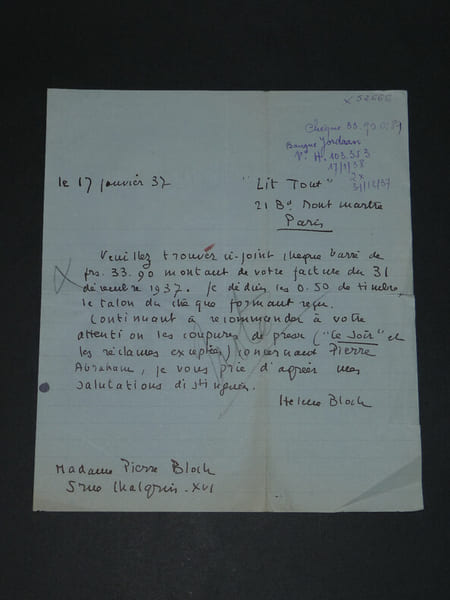 x 52666
Chèque 33.90
Banque Jordaan
N° H. 103.353
17/1/38
2x
31/12/37
le 17 janvier 37
"Lit Tout"
21 Bd Montmartre
Paris
Veuillez trouver ci-joint chèque barré de
frs. 33.90 montant de votre facture du 31
décembre 1937. Je déduis les 0.50 de timbre,
le talon du chèque formant reçu.
Continuant à recommander à votre
attention les coupures de presse ("Ce Soir" et
les réclames exceptées) concernant Pierre
Abraham, je vous prie d'agréer mes
salutations distinguées.
Hélène Bloch
Madame Pierre Bloch
5 rue Chalgrin. XVI